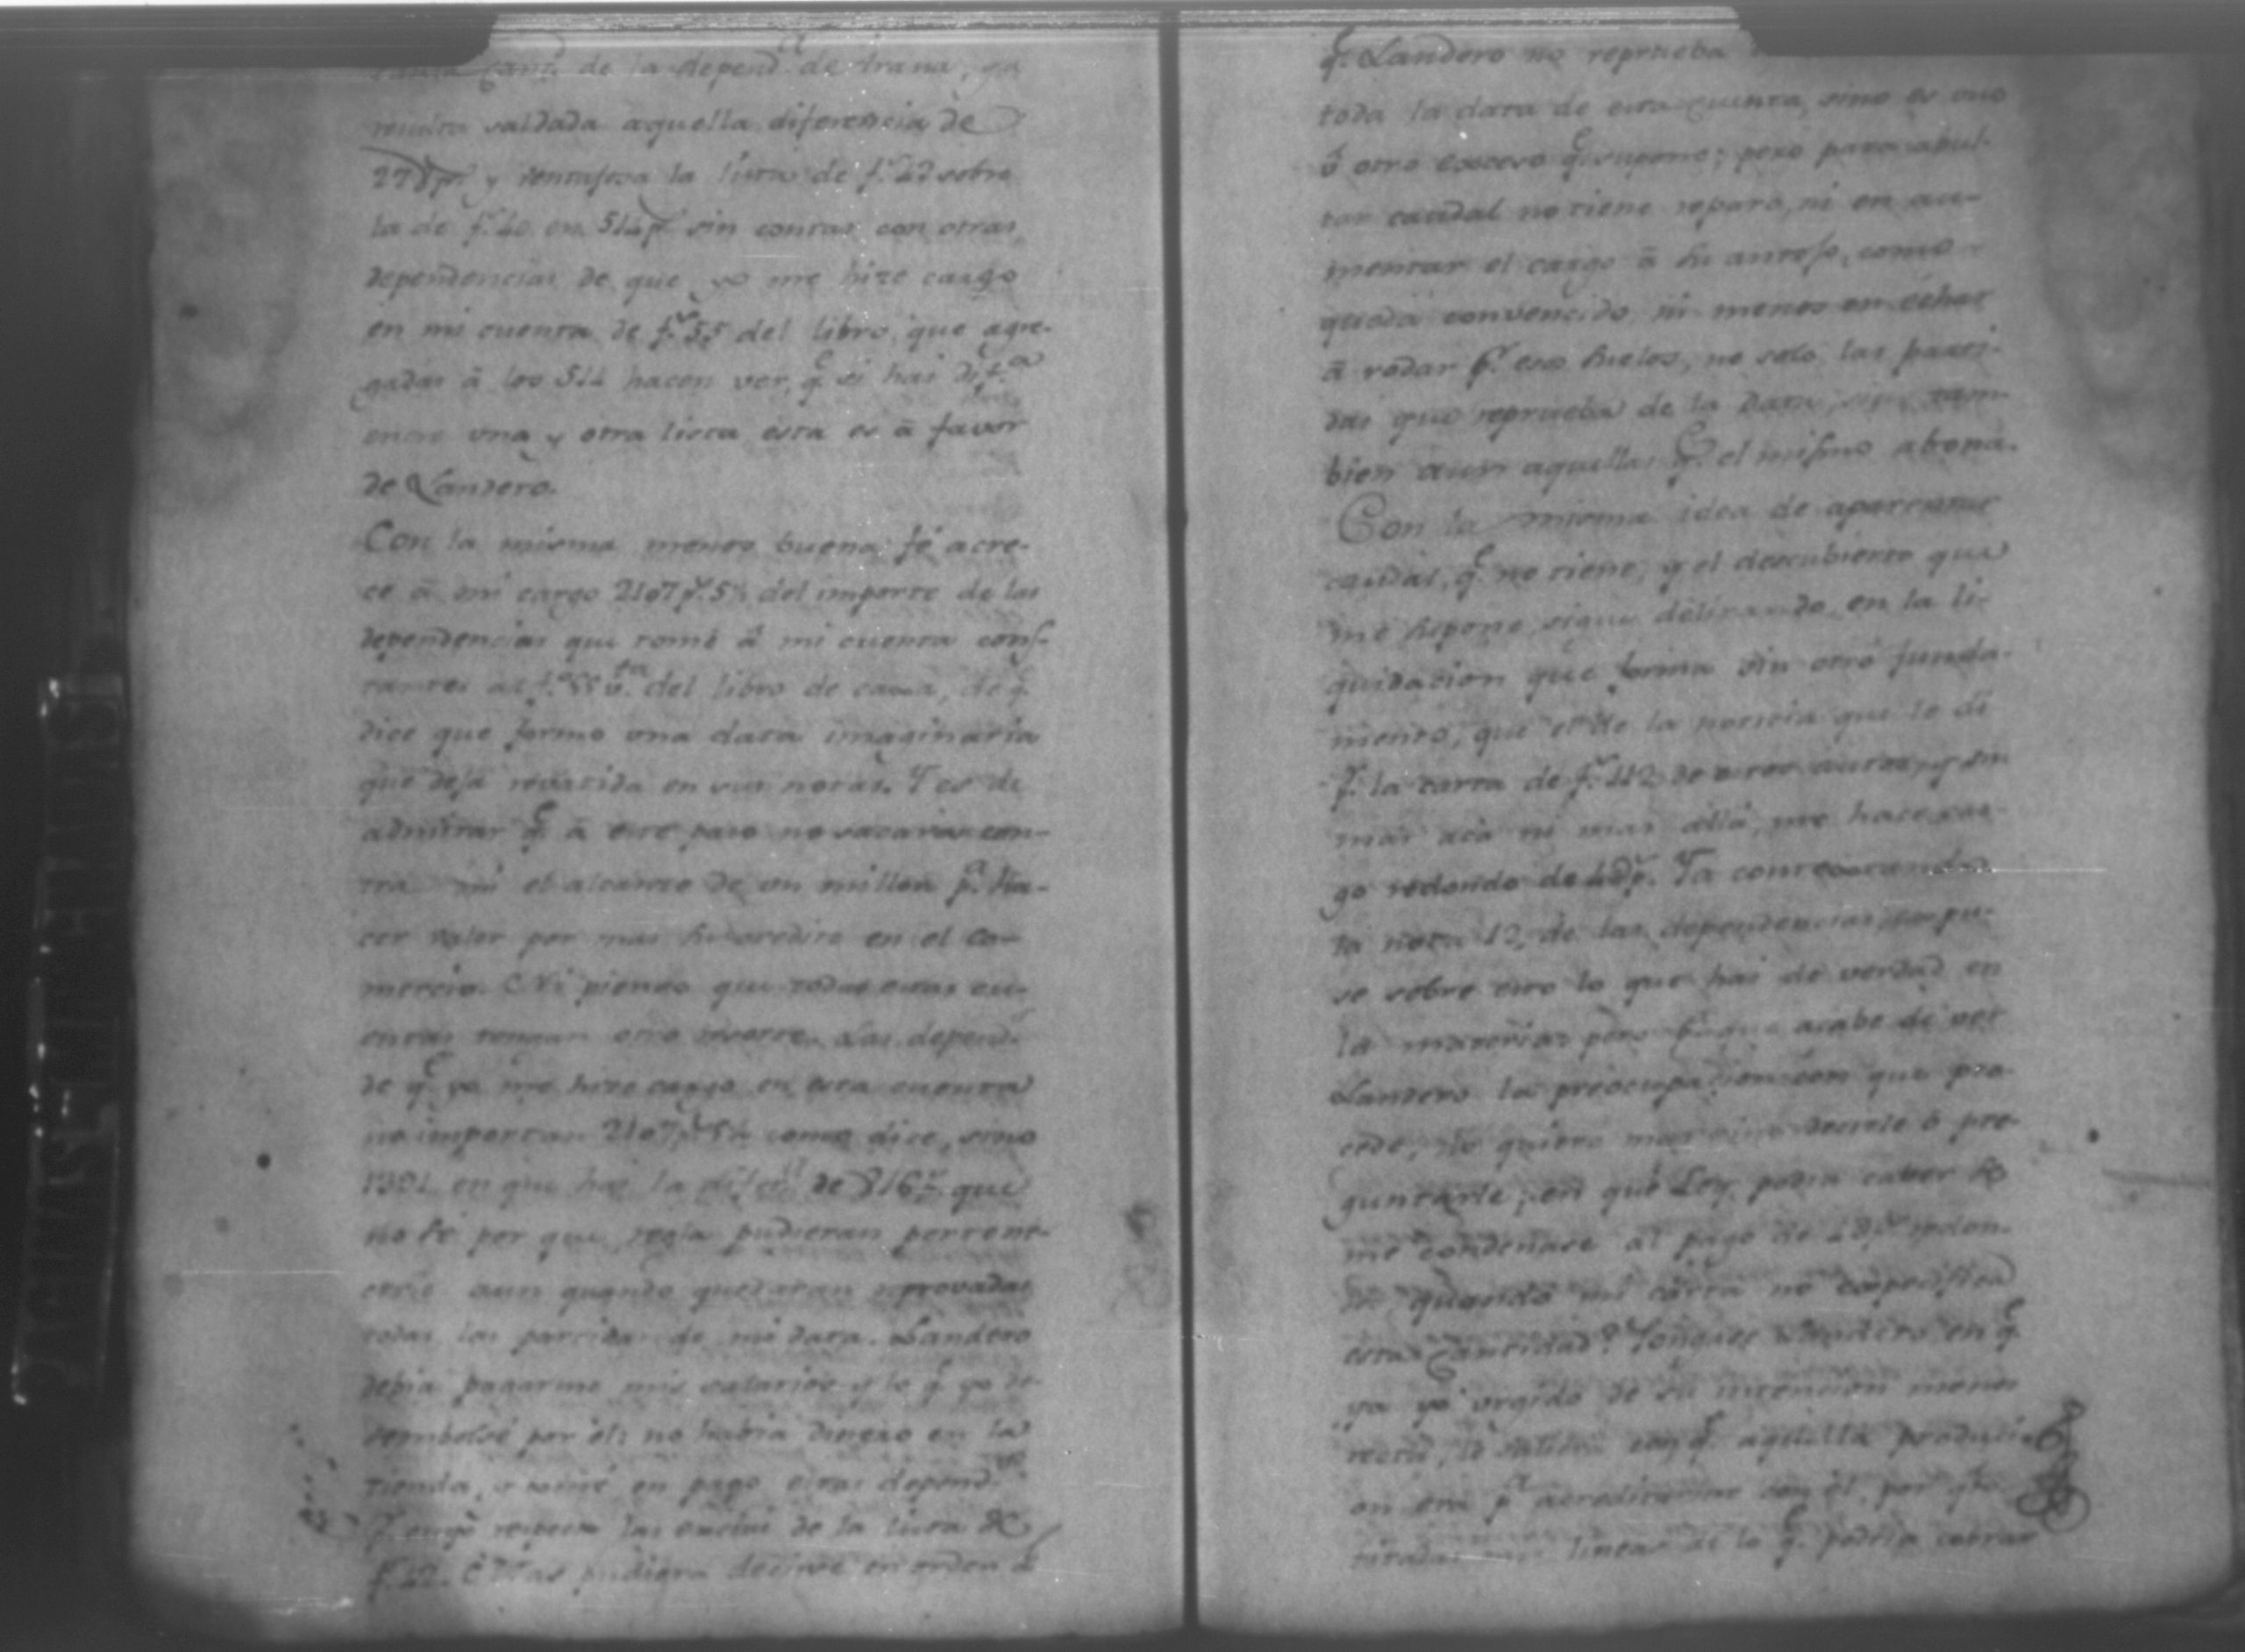 cant.^d de la depend.^a de trana, ya
saldada aquella diferencia de
27 8 p.^s y ventajosa la lista de f.^s 22 sobre
la de f.^s 40 en 514 p.^s sin contar con otras
dependencias de que yo me hize cargo
en mi cuenta de f.^s 55 del libro, que agre-
gadas â los 514 hacen ver, q.^e si hai dif.^a
entre una y otra lista esta es â favor
de Landero.
Con la misma menos buena fé acre-
ce â mi cargo 2107 p.^s 5½ del importe de las
dependencias que tomé â mi cuenta cons-
tantes al f.^s 55 v.^ta del libro de caxa, de q.^e
dice que formo una data imaginaria
que deja revatida en sus notas. Y es de
admirar q.^e â este paso no sacara con-
tra mi el alcance de un millon p.^a Ha-
cer valer por mas su credito en el co-
mercio. Ni pienso que todas estas cu-
entas tengan otro resorte. Las depend.^s
de q.^e yo me hize cargo en esta cuenta
no importan 2107 p.^s 5½ como dice, sino
1391 en que hai la difer.^a de 816 p.^s que
no sé por que regla pudieran pertene-
cerle aun quando quedaran reprovadas
todas las partidas de mi data. Landero
debia pagarme mis salarios y lo q.^e yo de-
sembolsé por él: no habia dinero en la
tienda, y tomé en pago estas depend.^as
p.^r cuyo respecto las excluí de la lista de
f.^s 22. Mas pudiera decirse en orden â
q.^e Landero no reprueba
toda la data de esta cuenta, sino es uno
û otro excesso q.^e supone; pero para abul-
tar caudal no tiene reparo, ni en au-
mentar el cargo â su antojo, como
queda convencido, ni menos en echar
â rodar p.^r esos suelos, no solo las parti-
das que reprueba de la data, sino tam-
bien aun aquellas q.^e el mismo abona.
Con la misma idea de aparentar
caudal, q.^e no tiene, y el descubierto que
me supone, sigue delirando en la li-
quidacion que forma sin otro funda-
mento, que el de la noticia que le di
p.^r la carta de f.^s 112 de estos autos, y sin
mas acá ni mas allá, me hace car-
go redondo de 4 8 p.^s Ya contextando
la nota 12, de las dependencias, expu-
se sobre esto lo que hai de verdad en
la materia: pero p.^a que acabe de ver
Landero la preocupacion con que pro-
cede, no quiero mas sino decirle ô pre-
guntarle, en qué Ley podia caber se
me condenase al pago de 4 8 p.^s redon-
dos quando mi carta no especifica
esta cantidad? Pongase Landero en q.^e
ya yo urgido de su intencion menos
recta, le con q.^e aquella producci-
on era p.^a acreditarme con él, por q.^e
tiradas lineas de lo q.^e podria cobrar